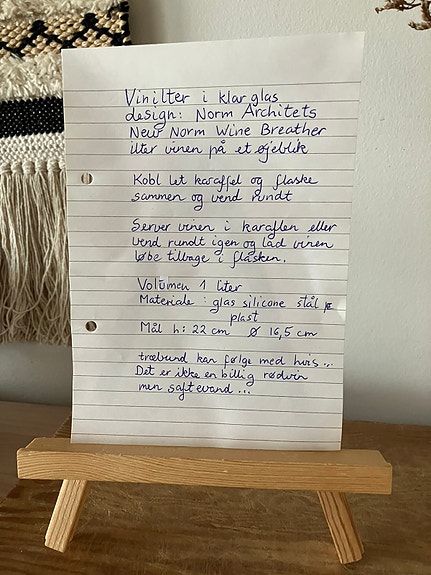 Vinilter i klar glas
design: Norm Architets
New Norm Wine Breather
ilter vinen på et øjeblik
Kobl let karaffel og flaske
sammen og vend rundt
Server vinen i karaflen eller
vend rundt igen og lad vinen
løbe tilbage i flasken.
Volumen 1 liter
Materiale: glas silicone stål
plast
Mål h: 22 cm Ø 16,5 cm
træbund kan følge med hvis...
Det er ikke en billig rødvin
men saftevand...